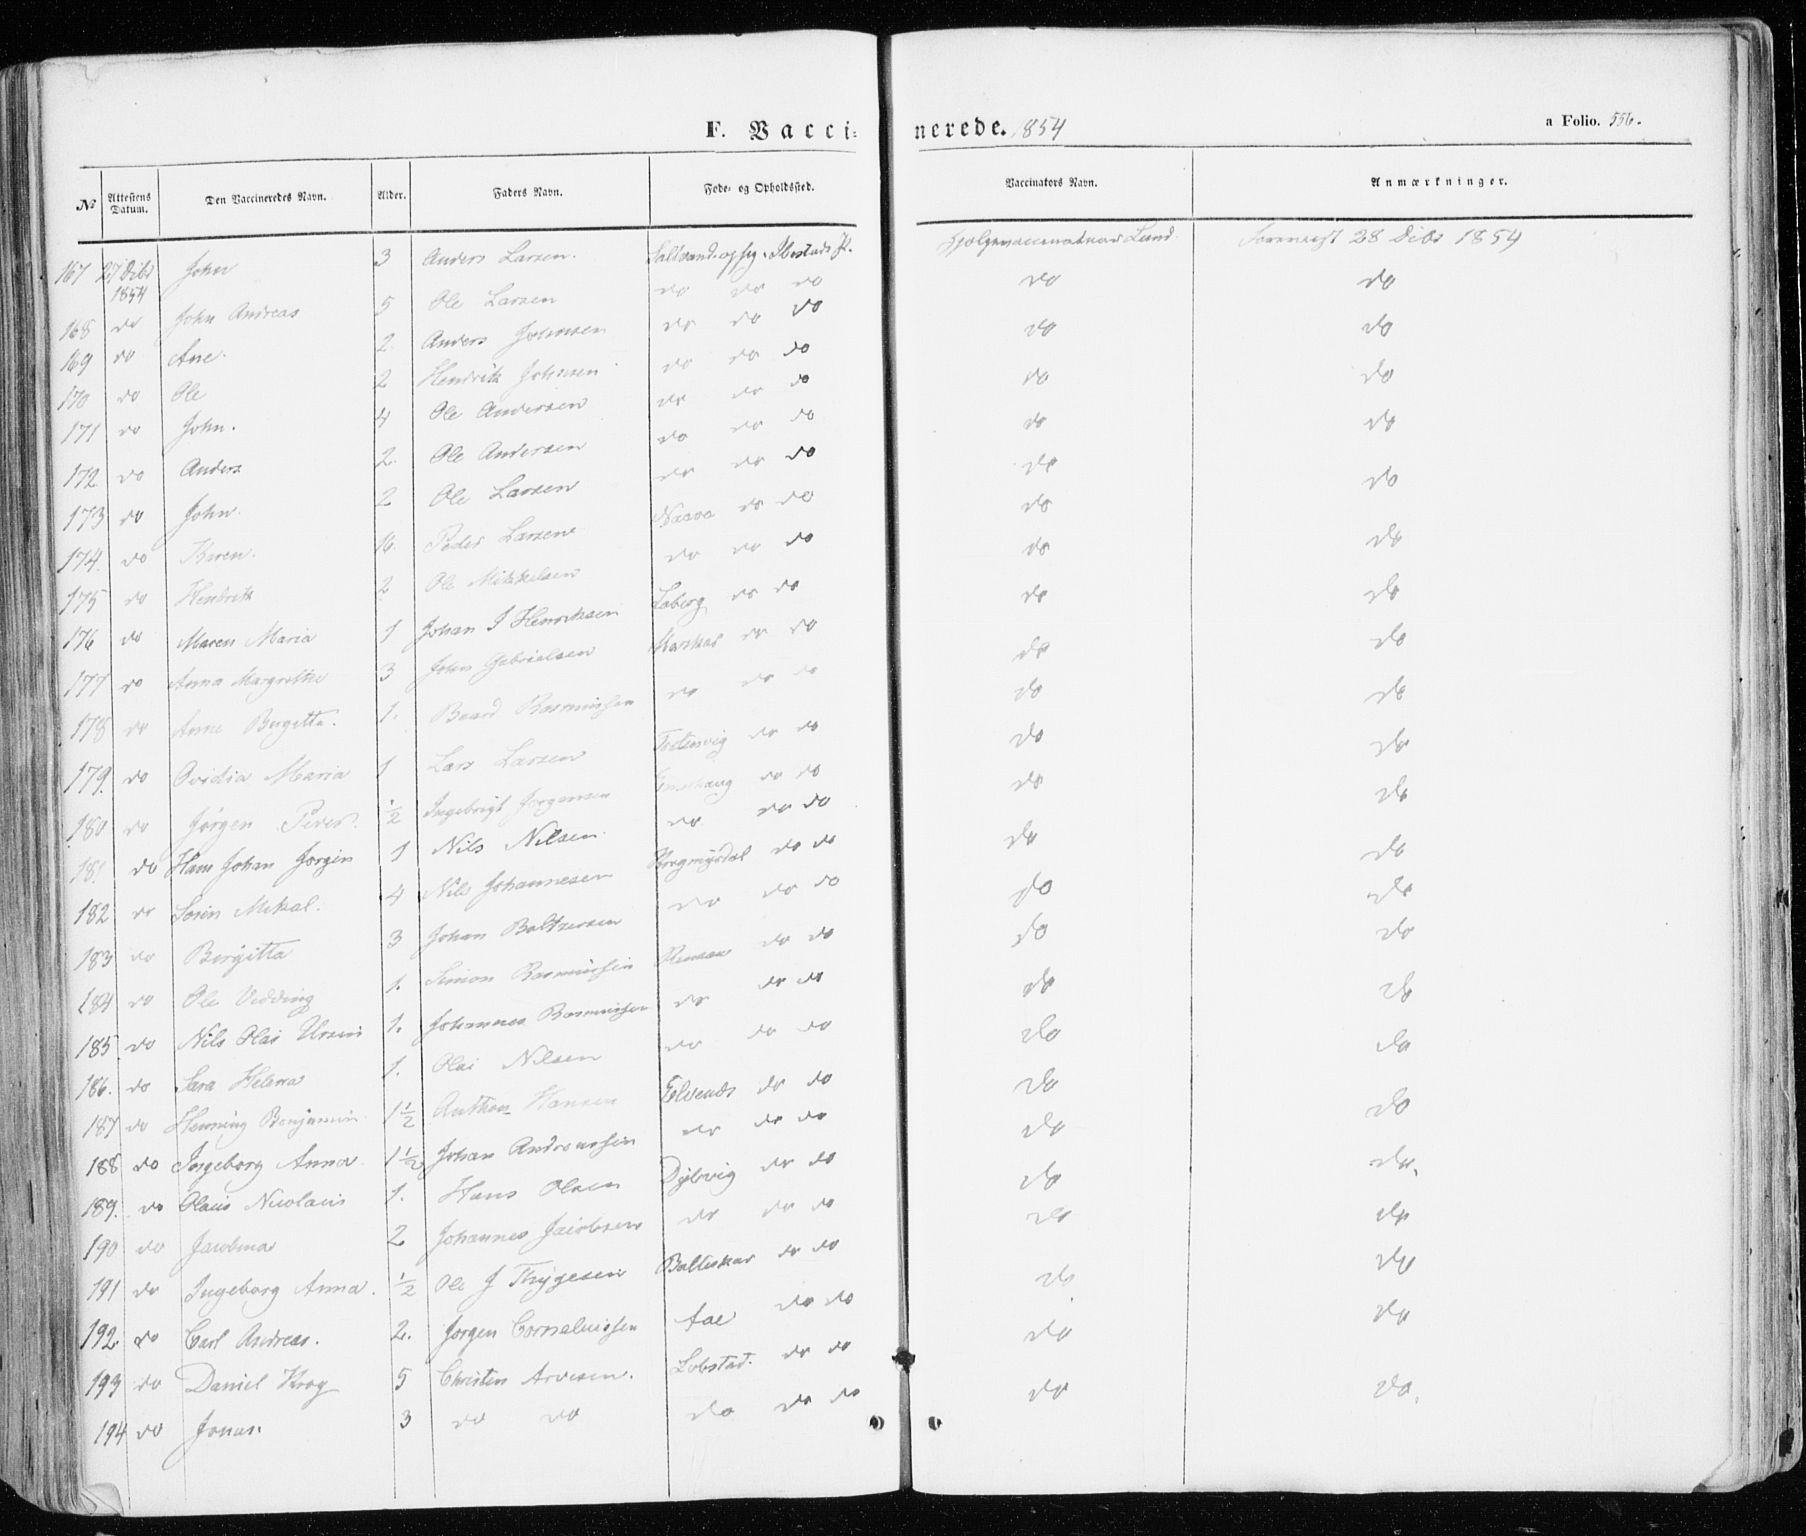 F. Vacci- nerede. 1854 a Folio. 556.
No Attestens Datum. Den Vaccineredes Navn. Alder. Faders Navn. Føde- og Opholdssted. Vaccinators Navn. Anmærkninger.
167 27 Dibr 1854 John 3 Anders Larsen. Lund 28 Dibr 1854
168 do John Andreas 5 Ole Larsen do do do do do
169 do Ane. 2. Anders Johnsen do do do do do
170 do Ole 2 Hendrik Johnsen do do do do do
171 do John. 4 Ole Andersen do do do do do
172 do Anders 2. Ole Andersen do do do do do
173 do John. 2 Ole Larsen do do do do do
174. do Karen. 16. Peder Larsen do do do do
175 do Hendrik 2 Ole Mikkelsen do do do do do
176 do Maren Maria 1 Johan J Henriksen Laberg do do do do
177 do Anna Margrethe 3 John Gabrielsen do do do do
178 do Anne Bergitta. 1. Baard Rasmussen do do do do do
179. do Ovidia Maria 1 Lars Larsen do do do do
180 do Jørgen Peder. ½ Ingebrigt Jørgensen do do do do
181 do Hans Johan Jørgin 1 Nils Nilsen. do do do do do
182 do Sørin Mikal. 4 Nils Johannesen do do do do
183 do Bergitta 3 Johan Baltzersen do do do do do
184 do Ole Vedding 1. Simon Rasmussen do do do do
185 do Nils Olai Ursin 1. Johannes Rasmussen do do do do do
186. do Sara Helena 1. Olai Nilsen do do do do do
187 do Henning Benjamin 1½ Anthon Hansen Elvenæs do do do do
188 do Ingeborg Anna 1½ Johan Andreassen do do do do do
189. do Olaus Nicolaus 1. Hans Olsen do do do do
190 do Jacobina 2 Johannes Jacobsen do do do do do
191 do Ingeborg Anna. ½ Ole J Thygesen Balteskar do do do do
192. do Carl Andreas. 2. Jørgen Corneliussen Aae do do do do
193 do Daniel Krog 5 Christen Arvesen. Løbstad. do do do do
194 do Jonas. 3 do do do do do